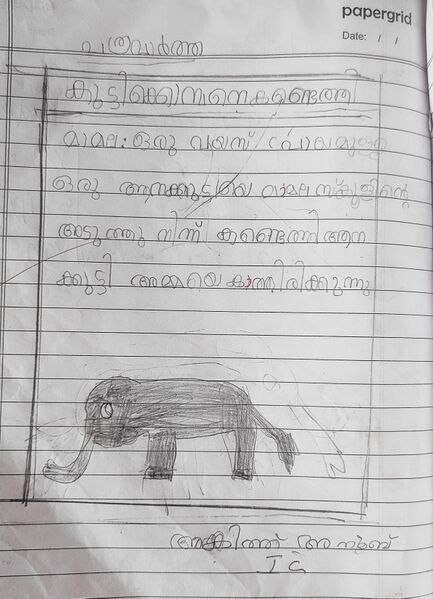 papergrid
Date: / /
പത്രവാർത്ത
കുട്ടിക്കൊമ്പനെ കണ്ടെത്തി
മാമല: ഒരു വയസ് പ്രായമുള്ള
ഒരു ആനക്കുട്ടിയെ മാമല സ്കൂളിന്റെ
അടുത്തു നിന്ന് കണ്ടെത്തി ആന
ക്കുട്ടി അമ്മയെ കാത്തിരിക്കുന്നു
അനൂബ്
I C